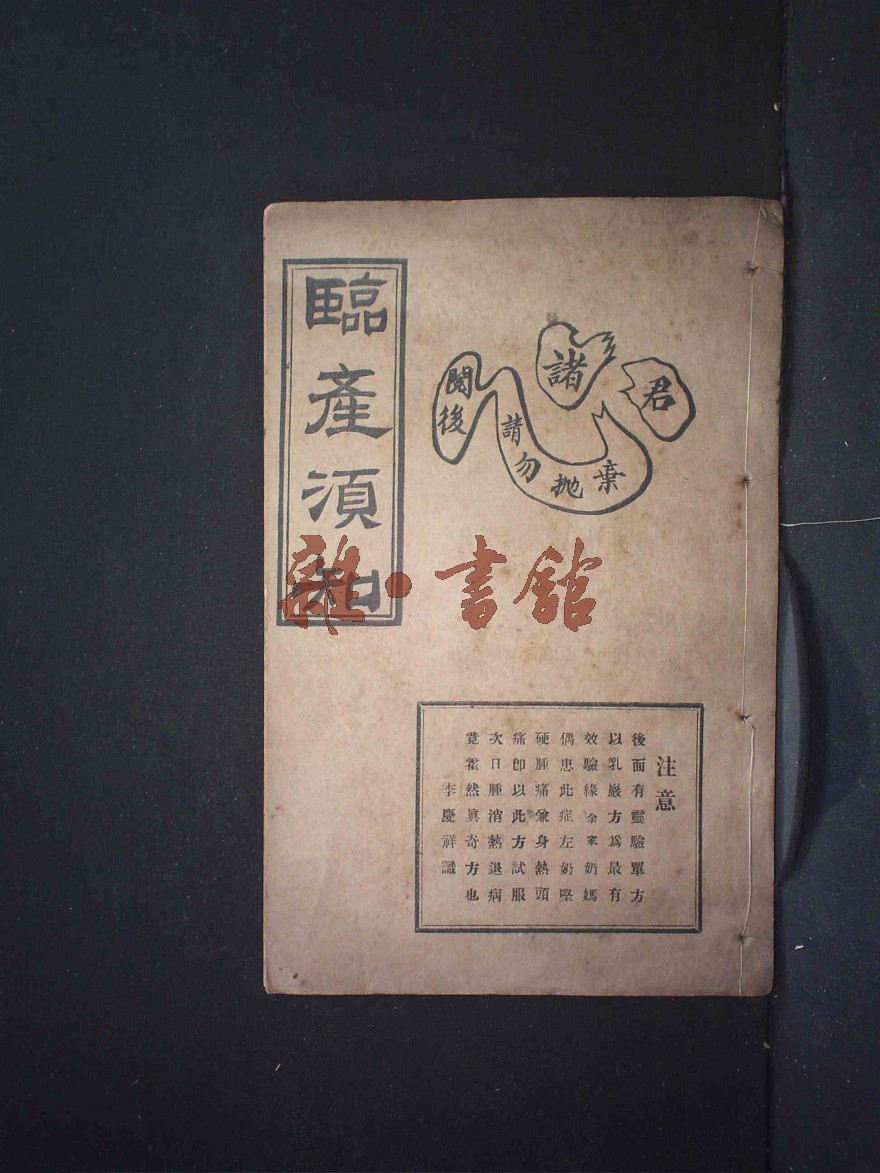 臨產須知
諸
君
閱後
請勿拋棄
注意
後面有靈驗單方
以乳巖方爲最有
效驗緣余家奶媽
偶患此症左奶堅
硬腫痛兼身熱頭
痛卽以此方試服
次日腫消熱退病
竟霍然眞奇方也
李慶祥識
雜·書舘